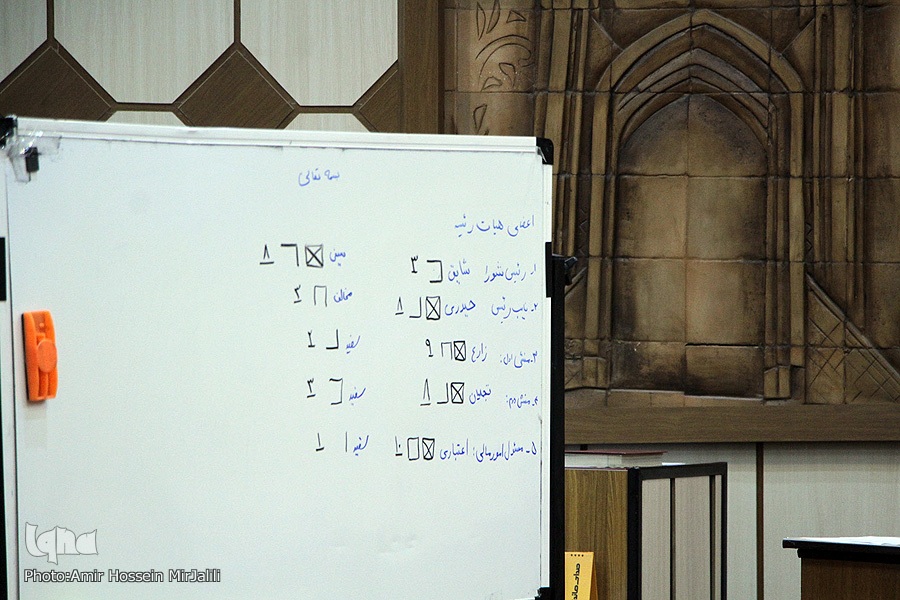 بسمه تعالی
اعضای هیات رئیسه
۱ـ رئیس شورا شایق ۳ معین ۸
۲ـ نایب رئیس حیدری ۸ مخالف ۲
۳ـ منشی اول: زارع ۹ سفید ۲
۴ـ منشی دوم: ۸ سفید ۳
۵ـ مسئول امور مالی: اعتباری ۱۰ سفید ۱
iqna
Photo:Amir Hossein MirJalili